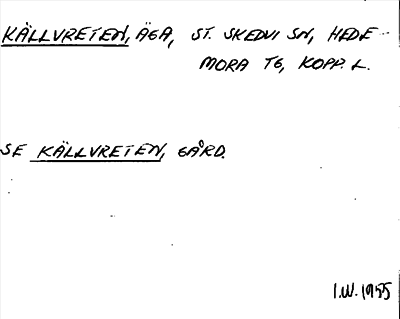 KÄLLVRETEN, ÄGA, ST. SKEDVI SN, HEDE-
MORA TG, KOPP. L.
SE KÄLLVRETEN, GÅRD.
I.W. 1955